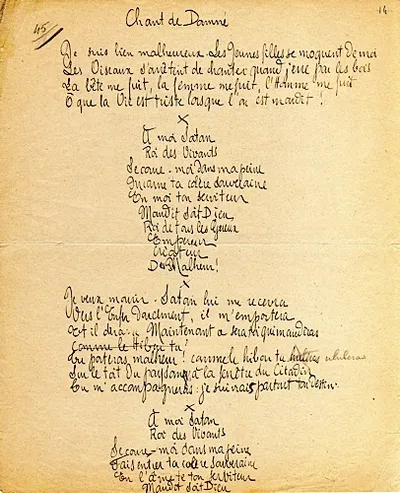 14
Chant de Damné
45
Je suis bien malheureux. Les Jeunes filles se moquent de moi
Les Oiseaux s'arrêtent de chanter quand j'erre par les bois
La bête me fuit, la femme me fuit, l'Homme me fuit
O que la Vie est triste lorsque l'on est maudit !
x
A moi Satan
Roi des Vivants
Secoure-moi dans ma peine
Incarne ta colère souveraine
En moi ton serviteur
Maudit soit Dieu
Roi de tous les
Empereur
Créateur
Du Malheur !
x
Je veux mourir. Satan lui me recevra
Vers l'Enfer, il m'emportera
Et il dira : Maintenant
comme le Hibou tu
Tu malheur ! comme le hibou tu ululeras
Sur le toit du paysan, à la fenêtre du Citadin
Tu m'accompagneras : je suivrais partout ton destin.
x
A moi Satan
Roi des Vivants
Secoure-moi dans ma peine
Fais entrer ta colère souveraine
En l'âme de ton serviteur
Maudit soit Dieu